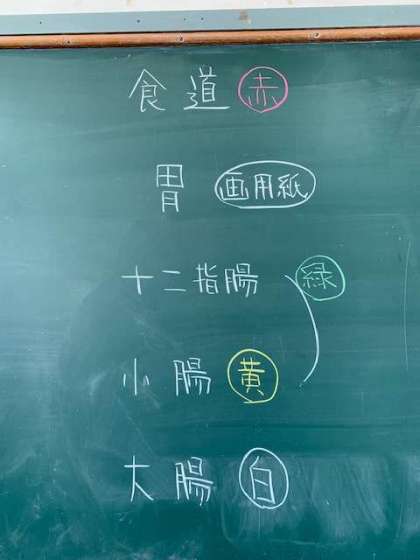 食道 赤
胃 画用紙
十二指腸 緑
小腸 黄
大腸 白